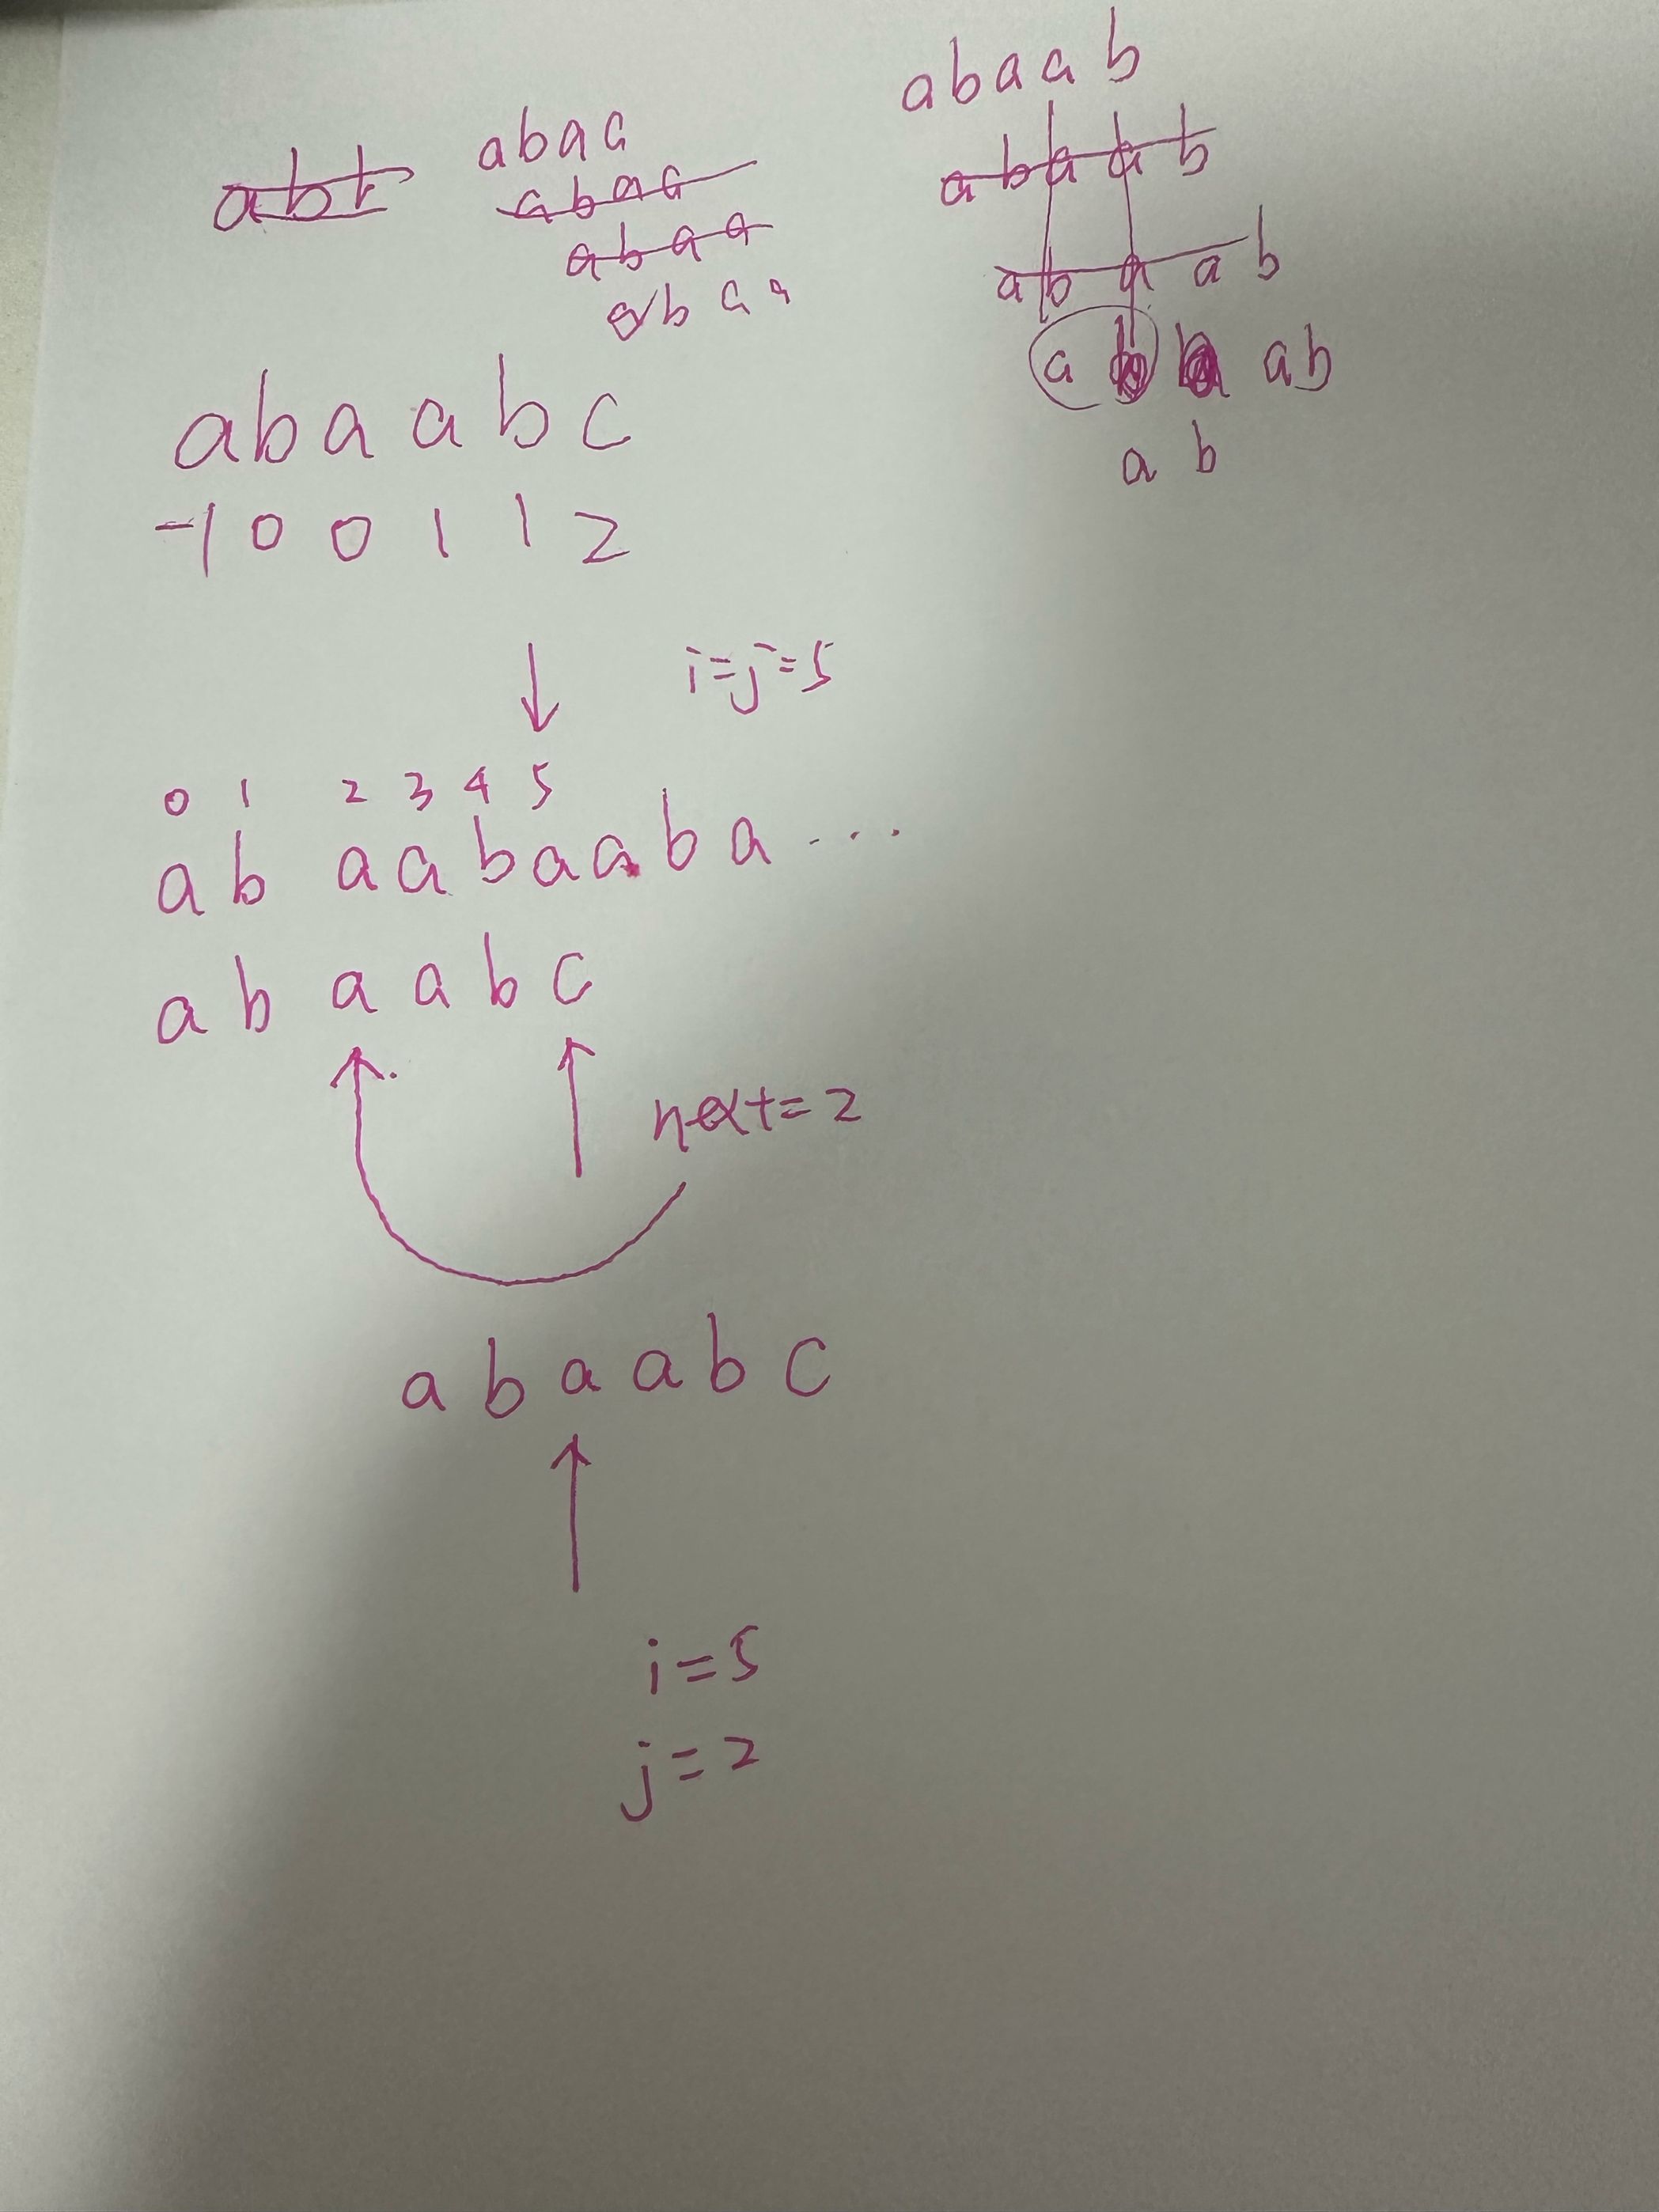 abaa
abaa
abaa
abaa
abaaab
abaab
abaab
a ab
a b
abaabc
-1 0 0 1 1 2
i=j=5
0 1 2 3 4 5
abaabaaba...
abaabc
next=2
abaabc
i=5
j=2